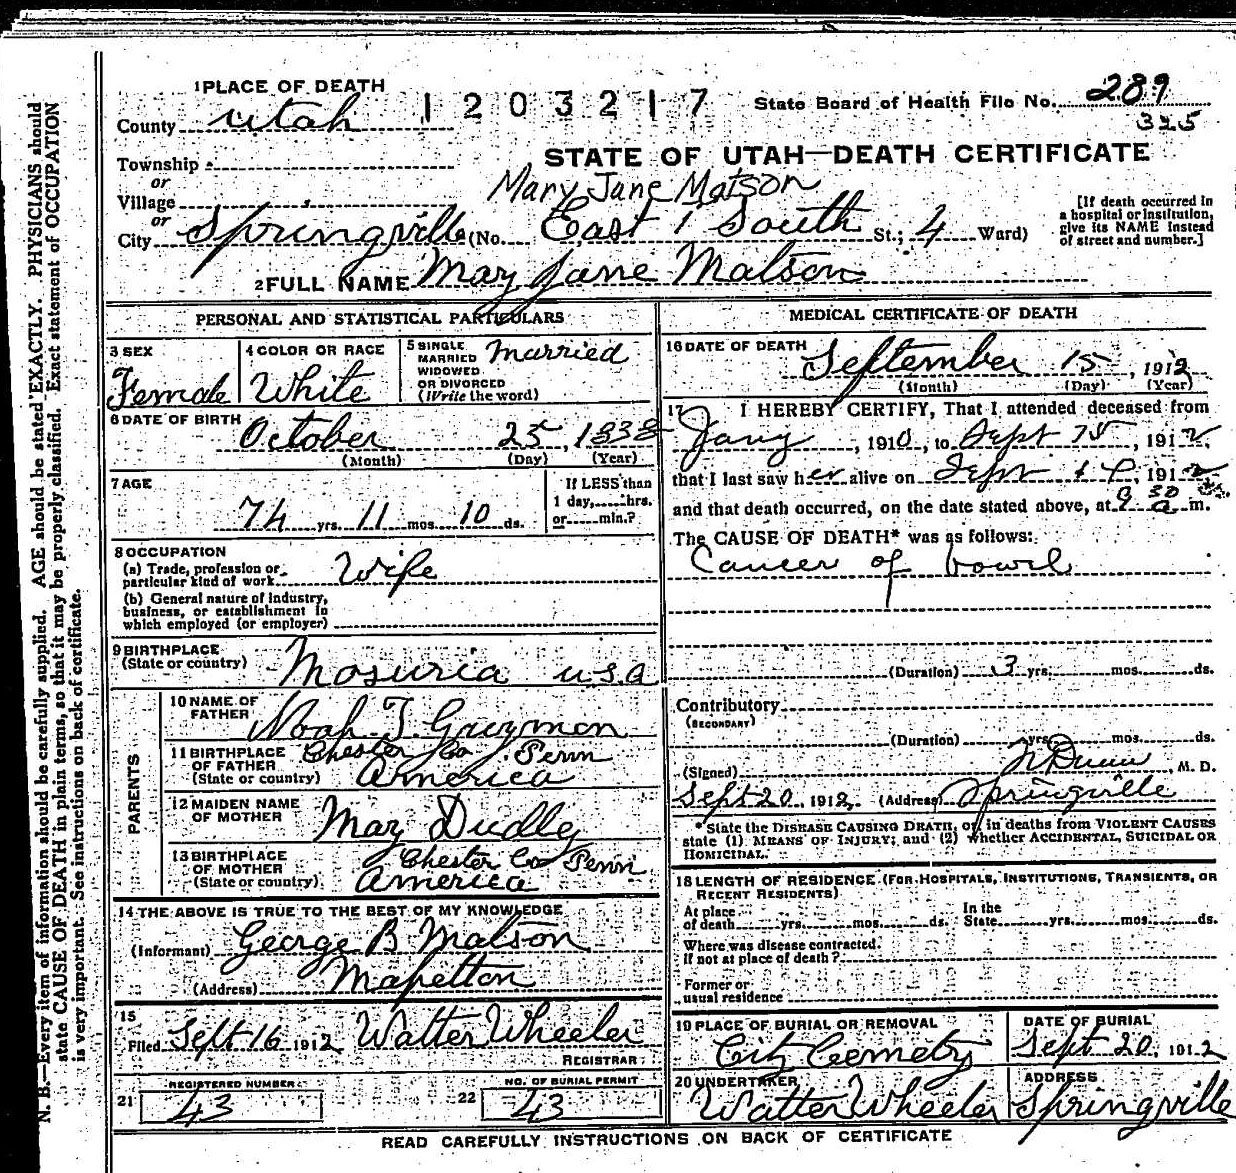 1 PLACE OF DEATH
1203217
State Board of Health File No. 289
325
County Utah
STATE OF UTAH—DEATH CERTIFICATE
Township
or
Village
or
Mary Jane Matson
City Springville (No. East 1 South St.; 4 Ward)
[If death occurred in
a hospital or institution,
give its NAME instead
of street and number.]
2 FULL NAME Mary Jane Matson
PERSONAL AND STATISTICAL PARTICULARS
3 SEX
Female
4 COLOR OR RACE
White
5 SINGLE
MARRIED
WIDOWED
OR DIVORCED
(Write the word)
Married
6 DATE OF BIRTH
October 25, 1838
(Month) (Day) (Year)
7 AGE
74 yrs. 11 mos. 10 ds.
If LESS than
1 day,.....hrs.
or.....min.?
8 OCCUPATION
(a) Trade, profession or
particular kind of work Wife
(b) General nature of industry,
business, or establishment in
which employed (or employer)
9 BIRTHPLACE
(State or country) Mosuria U.S.A
PARENTS
10 NAME OF
FATHER Noah T. Guymon
11 BIRTHPLACE
OF FATHER
(State or country)
Chester Co Penn
America
12 MAIDEN NAME
OF MOTHER Mary Dudley
13 BIRTHPLACE
OF MOTHER
(State or country)
Chester Co Penn
America
14 THE ABOVE IS TRUE TO THE BEST OF MY KNOWLEDGE
(Informant) George B Matson
(Address) Mapelton
15
Filed Sept 16 1912 Walter Wheeler
REGISTRAR
21
REGISTERED NUMBER
43
22
NO. OF BURIAL PERMIT
43
MEDICAL CERTIFICATE OF DEATH
16 DATE OF DEATH
September 15, 1912
(Month) (Day) (Year)
17 I HEREBY CERTIFY, That I attended deceased from
Jany, 1910, to Sept 15, 1912,
that I last saw her alive on Sept, 1912
and that death occurred, on the date stated above, at 9 30 a m.
The CAUSE OF DEATH* was as follows:
Cancer of bowel
(Duration) 3 yrs. mos. ds.
Contributory
(SECONDARY)
(Duration) yrs. mos. ds.
(Signed) Dunn, M. D.
Sept 20, 1912 (Address) Springville
*State the DISEASE CAUSING DEATH, or, in deaths from VIOLENT CAUSES
state (1) MEANS OF INJURY; and (2) whether ACCIDENTAL, SUICIDAL OR
HOMICIDAL.
18 LENGTH OF RESIDENCE (FOR HOSPITALS, INSTITUTIONS, TRANSIENTS, OR
RECENT RESIDENTS)
At place
of death yrs. mos. ds.
In the
State yrs. mos. ds.
Where was disease contracted.
if not at place of death?
Former or
usual residence
19 PLACE OF BURIAL OR REMOVAL
City Cemetry
DATE OF BURIAL
Sept 20, 1912
20 UNDERTAKER
Walter Wheeler
ADDRESS
Springville
READ CAREFULLY INSTRUCTIONS ON BACK OF CERTIFICATE
N. B.—Every item of information should be carefully supplied. AGE should be stated EXACTLY. PHYSICIANS should
state CAUSE OF DEATH in plain terms, so that it may be properly classified. Exact statement of OCCUPATION
is very important. See instructions on back of certificate.